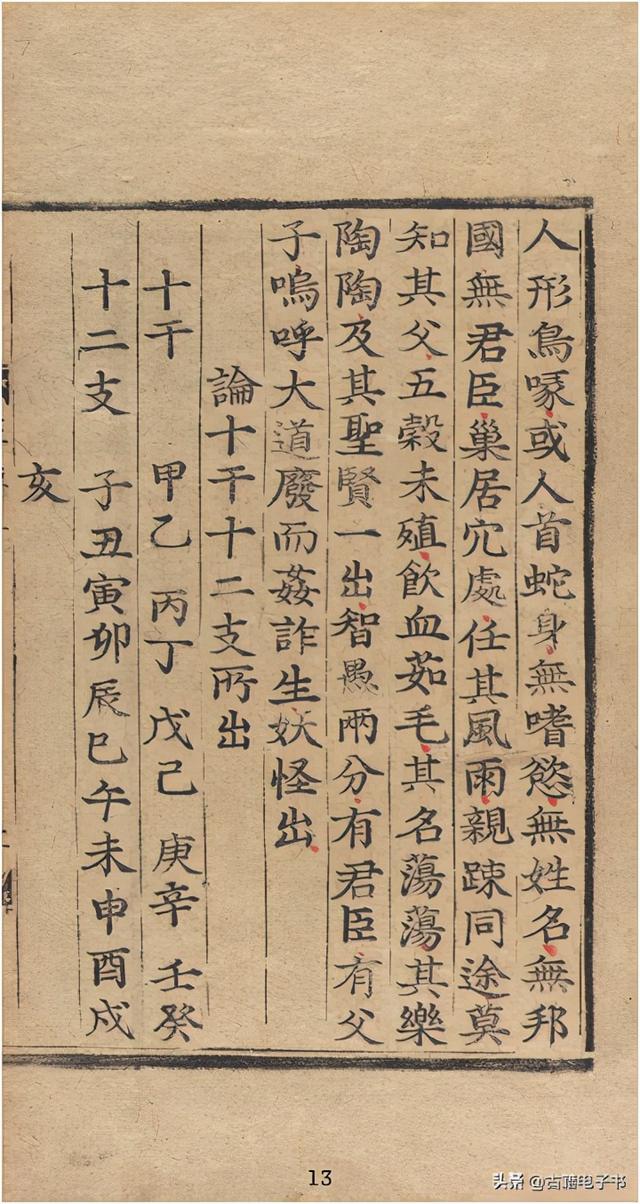 人形鳥喙或人首蛇身無嗜慾無姓名無邦
國無君臣巢居穴處任其風雨親疎同途莫
知其父五穀未殖飲血茹毛其名蕩蕩其樂
陶陶及其聖賢一出智愚兩分有君臣有父
子嗚呼大道廢而姦詐生妖怪出
論十干十二支所出
十干 甲乙 丙丁 戊己 庚辛 壬癸
十二支 子丑寅卯辰巳午未申酉戍
亥
13
头条 @古籍电子书